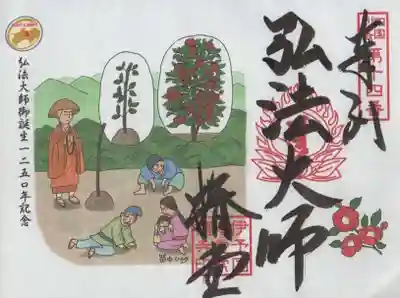 第十四番
奉拝
弘法大師
椿堂
弘法大師御誕生一二五〇年記念